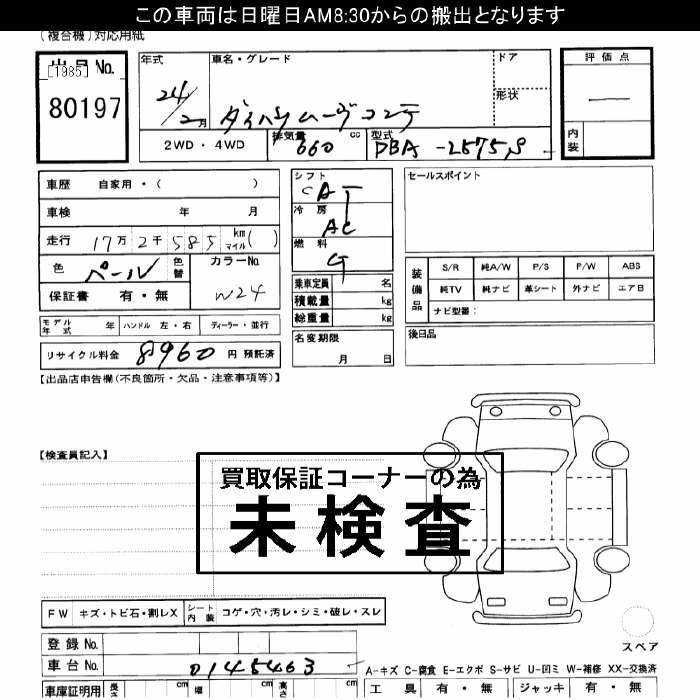 この車両は日曜日AM8:30からの搬出となります
(複合機)対応用紙
出品No.
[1985]
80197
年式
24/2月
車名・グレード
ダイハツムーヴコンテ
ドア
形状
評価点
内装
2WD・4WD
排気量 660 cc
型式 DBA-L575S
車歴 自家用・( )
車検 年 月
走行 17万2千585 km マイル( )
色 パール
色替
カラーNo. W24
保証書 有・無
シフト CAT
冷房 AC
燃料 G
乗車定員 名
積載量 kg
総重量 kg
名変期限
月 日
セールスポイント
装備品
S/R 純A/W P/S P/W ABS
純TV 純ナビ 革シート 外ナビ エアB
ナビ型番:
後日品
モデル年式 年 ハンドル 左・右 ディーラー・並行
リサイクル料金 8960 円 預託済
【出品店申告欄(不良箇所・欠品・注意事項等)】
【検査員記入】
買取保証コーナーの為
未検査
FW キズ・トビ石・割レX シート内装 コゲ・穴・汚レ・シミ・破レ・スレ
スペア
登録No.
車台No. 0145463
A-キズ C-腐食 E-エクボ S-サビ U-凹ミ W-補修 XX-交換済
車庫証明用 長さ cm 幅 cm 高さ cm
工具 有・無 ジャッキ 有・無